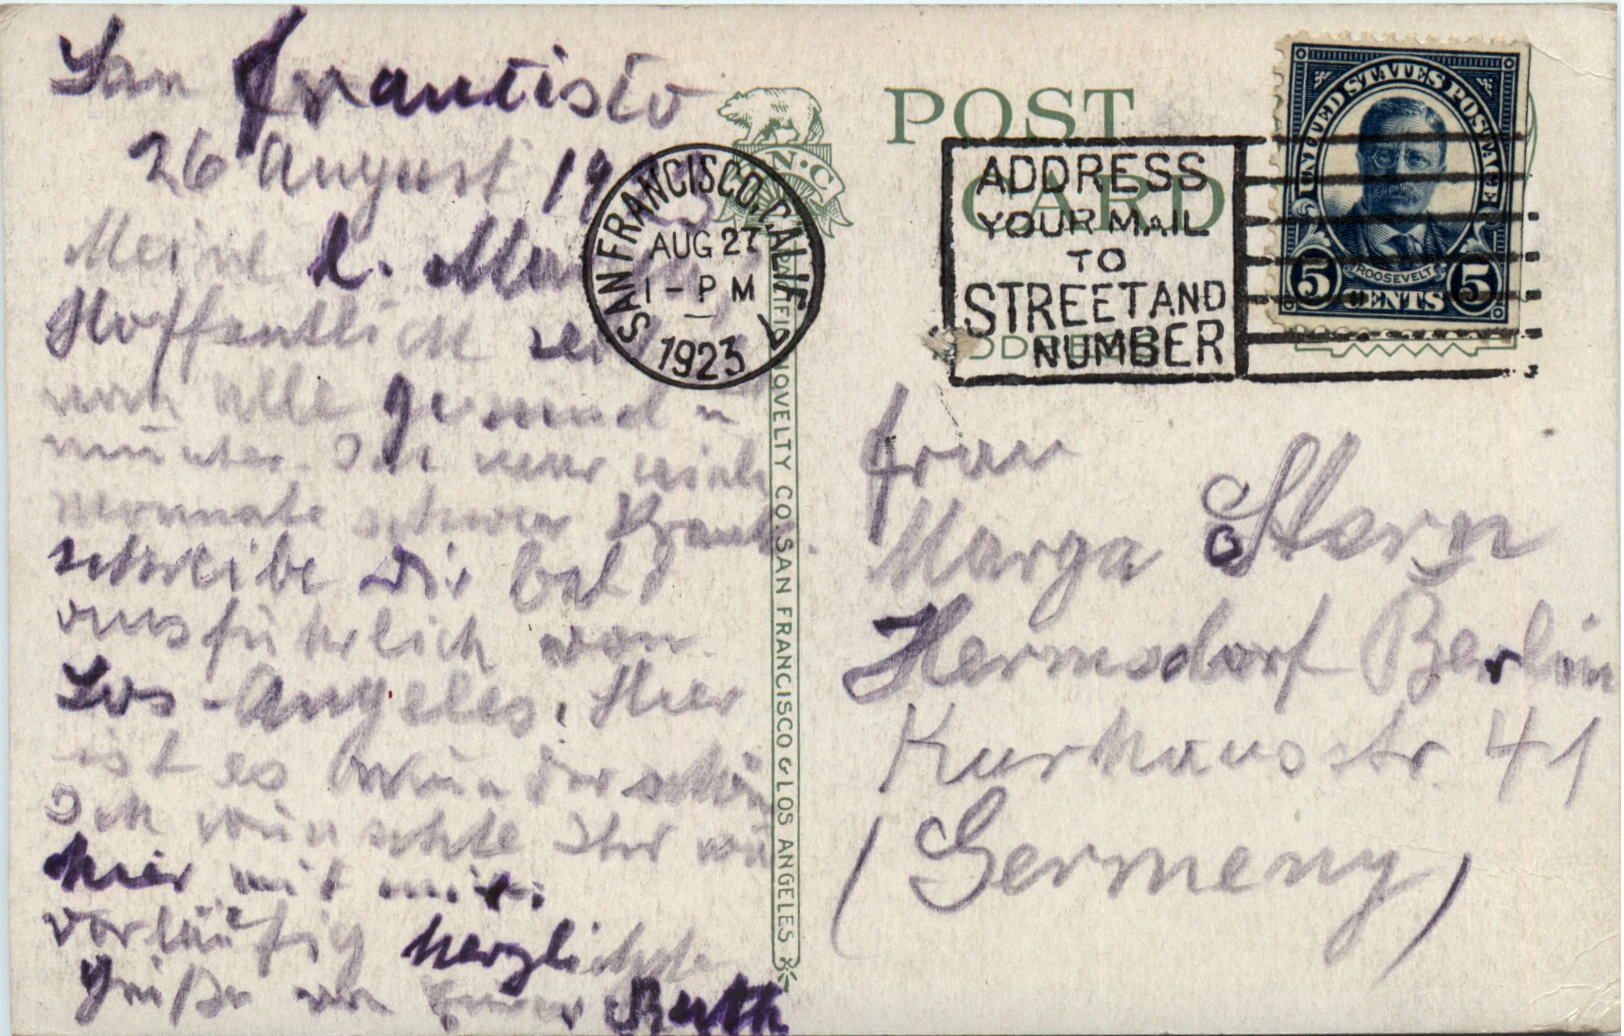 San Francisco
26 August 19
Meine l.
Hoffentlich
alle gesund u
munter. Ich
schwer krank.
schreibe Dir bald
ausführlich von
Los-Angeles. Hier
ist es wunderschön
Ich wünschte Ihr wär
hier mit mir.
vorläufig herzlichste
Grüße von Eurer Ruth
N.C.
PACIFIC NOVELTY CO. SAN FRANCISCO & LOS ANGELES
SAN FRANCISCO, CALIF.
AUG 27
1-PM
1923
POST
CARD
ADDRESS
YOUR MAIL
TO
STREET AND
NUMBER
UNITED STATES POSTAGE
ROOSEVELT
5 CENTS 5
Frau
Marga Stern
Hermsdorf Berlin
Kurhausstr. 41
(Germeny)